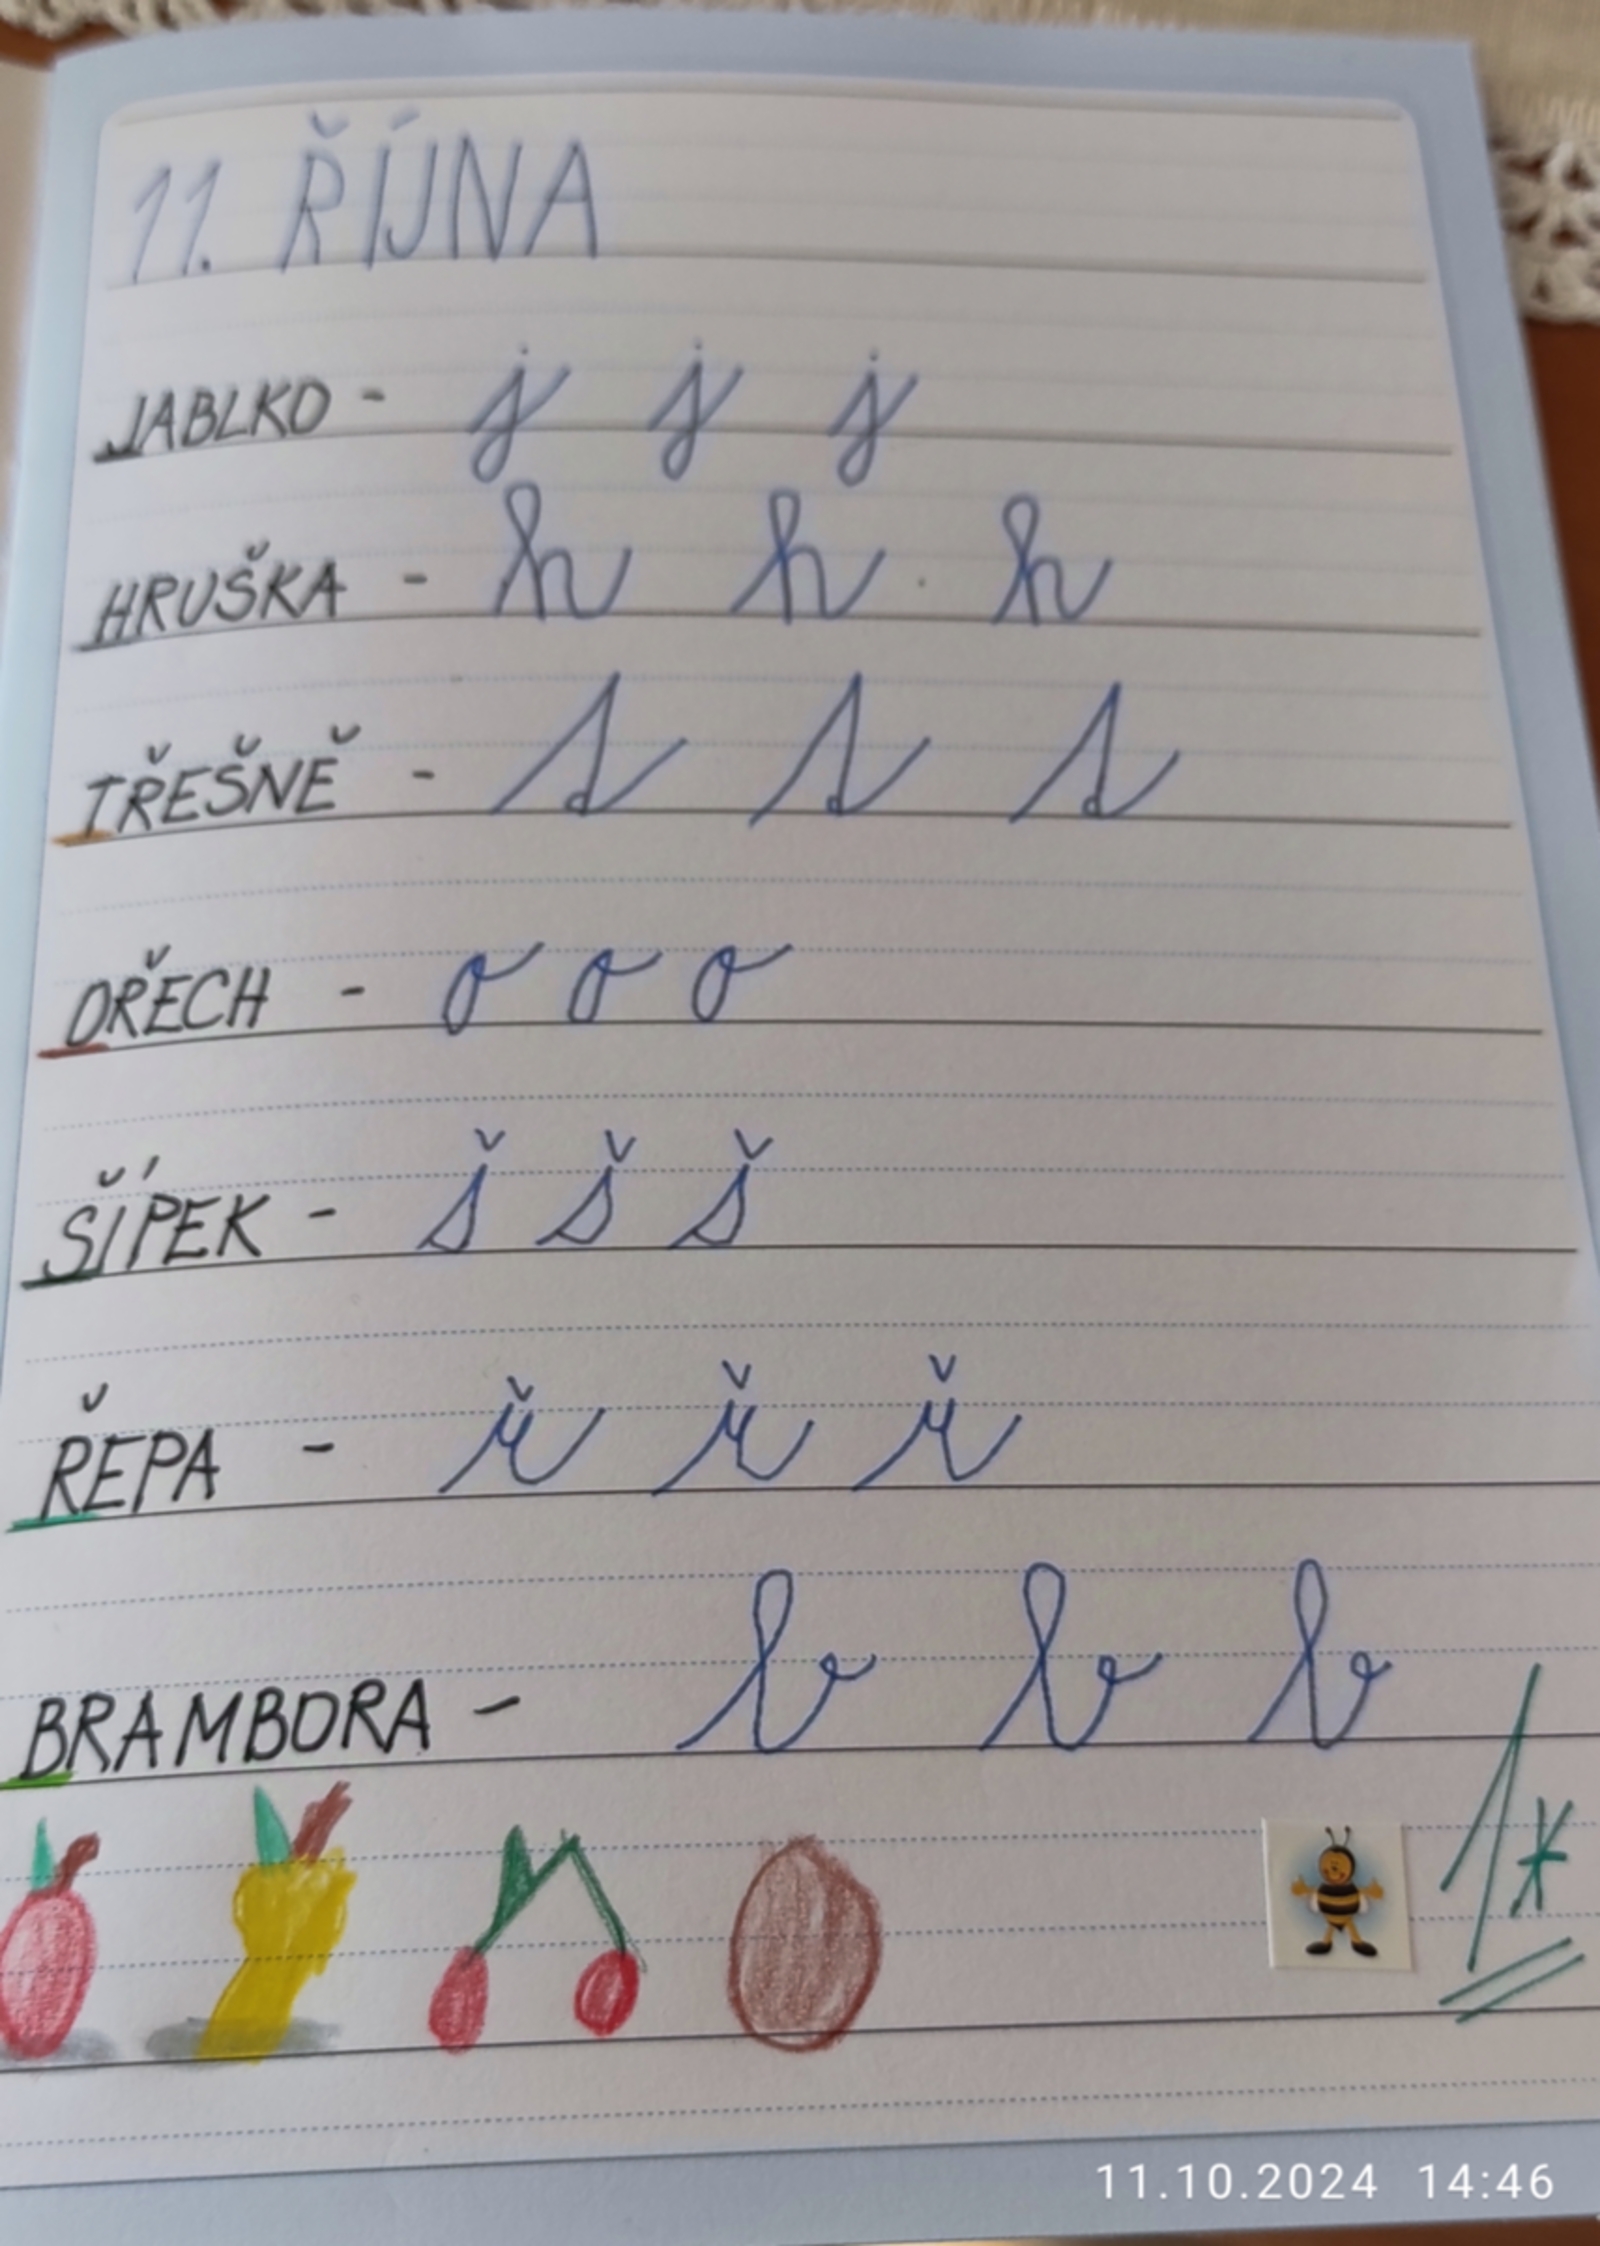 11. ŘÍJNA
JABLKO - j j j
HRUŠKA - h h h
TŘEŠNĚ - t t t
OŘECH - o o o
ŠÍPEK - š š š
ŘEPA - ř ř ř
BRAMBORA - b b b
1*
11.10.2024 14:46